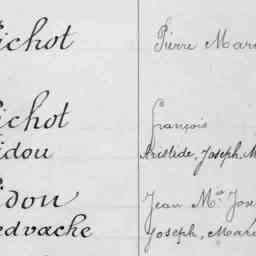 ichot Pierre Mari
ichot François
idou Aristide, Joseph, M
idou Jean M.ie Jose
edvache Joseph, Mari